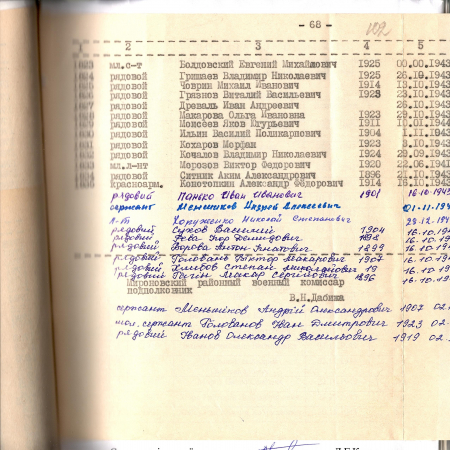 - 68 -
102
1 2 3 4 5
мл.с-т Болдовский Евгений Михайлович 1925 00.00.1943
рядовой Гришаев Владимир Николаевич 1925 26.10.1943
рядовой Човрин Михаил Иванович 1914 15.10.1943
рядовой Гравнов Виталий Васильевич 1923 23.10.1943
рядовой Древаль Иван Андреевич 26.10.1943
рядовой Макарова Ольга Ивановна 1923 29.10.1943
рядовой Моисеев Яков Егурьевич 1911 10.10.1943
рядовой Ильин Василий Поликарпович 1904 1.11.1943
рядовой Кохаров Мерфан 1923 9.10.1943
рядовой Кочалов Владимир Николаевич 1924 29.09.1943
мл.л-нт Морозов Виктор Федорович 1920 22.06.1943
рядовой Ситник Аким Александрович 1896 21.10.1943
красноарм. Конотопкин Александр Фёдорович 1914 16.10.1943
рядовий Панько Иван Иванович 1901 16.10.194
сержант Меньшиков Андрей Алексеевич 01-11-194
л-т Хоруженко Николай Степанович 23.12.194
рядовий Сухов Василий 1904 16.10.194
рядовий Рева Егор Демидович 1898 16.10.19
рядовий Борова Антон Гнатович 1899 16.10.194
рядовий Головань Віктор Макарович 1907 16.10.19
рядовий Хлибов Степан Миколайович 19 16.10.19
рядовий Макар Сергійович 1896 16.10.19
Мироновский районный военный комиссар
подполковник
В.Н.Дабижа
сержант Меньшиков Андрій Олександрович 1907 02.
мол. сержант Голованов Иван Дмитрович 1923 02-
рядовий Іванов Олександр Васильович 1919 02.